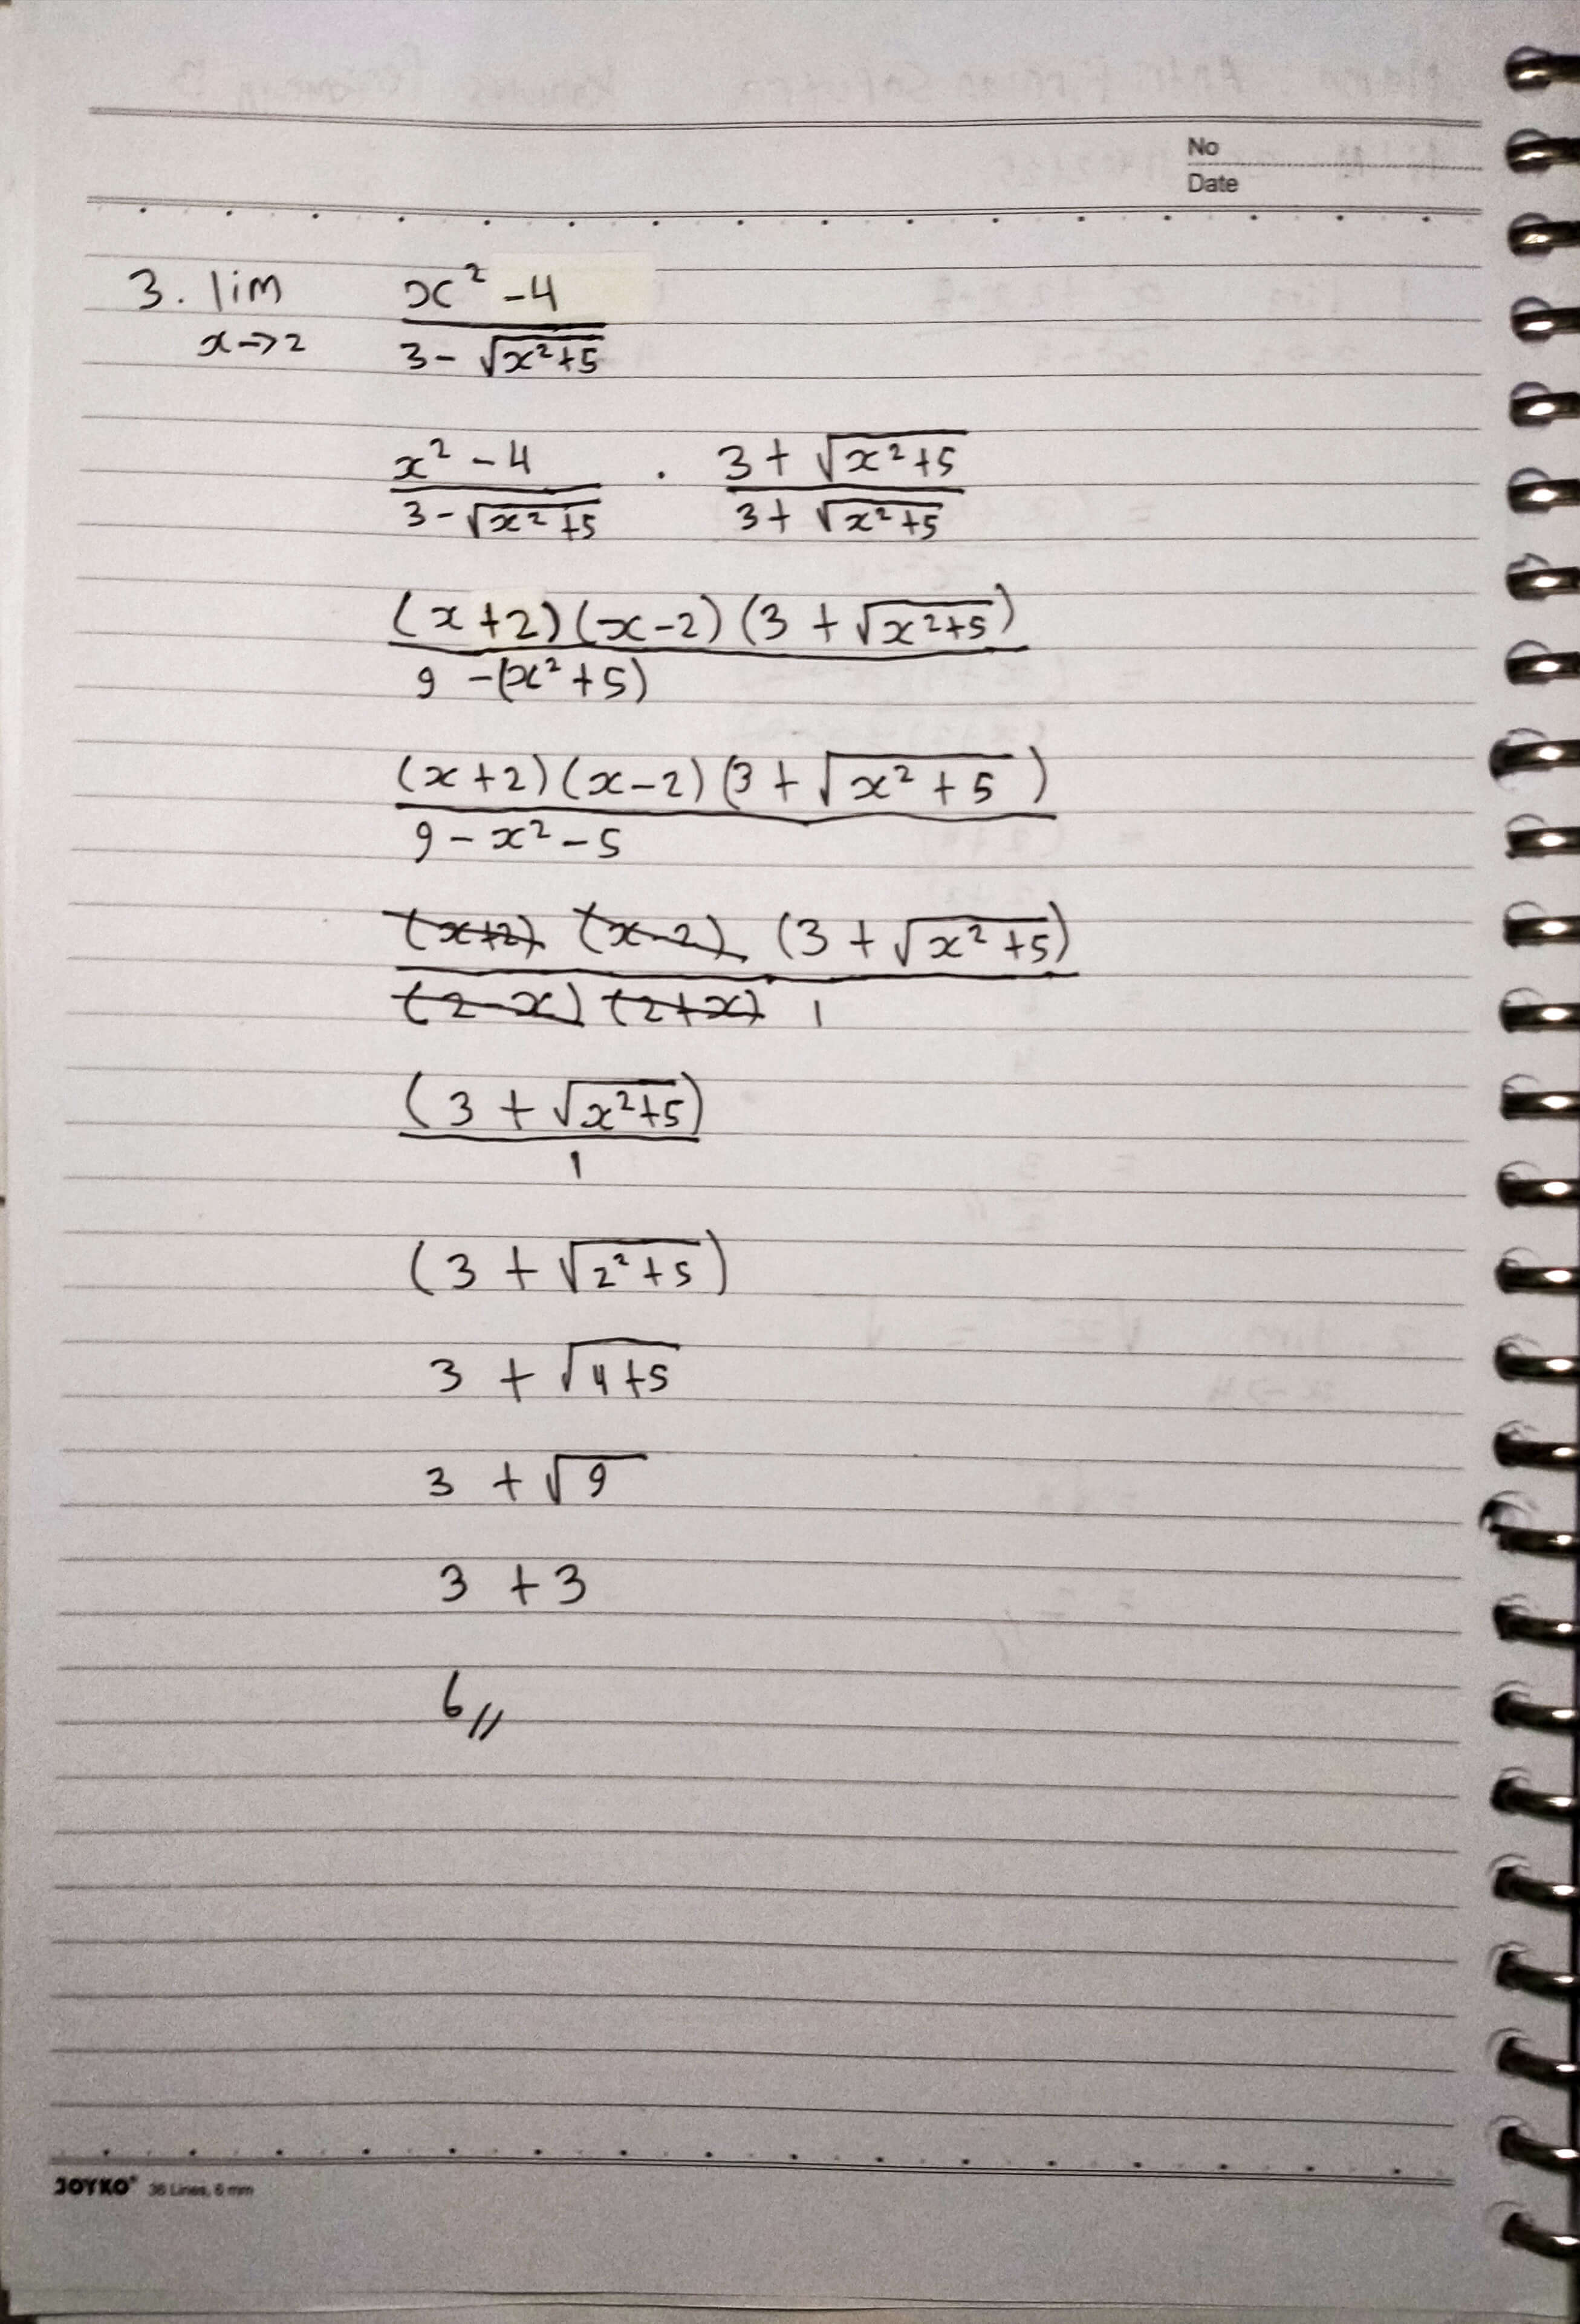 No
Date
3. lim x² - 4
x→2 3 - √x²+5
x² - 4 . 3 + √x²+5
3 - √x²+5 3 + √x²+5
(x+2)(x-2)(3 + √x²+5)
9 -(x²+5)
(x+2)(x-2)(3 + √x²+5)
9 - x² - 5
(x+2) (x-2) (3 + √x²+5)
(2-x) (2+x) 1
(3 + √x²+5)
1
(3 + √2²+5)
3 + √4+5
3 + √9
3 + 3
6//
JOYKO® 36 Lines, 6 mm